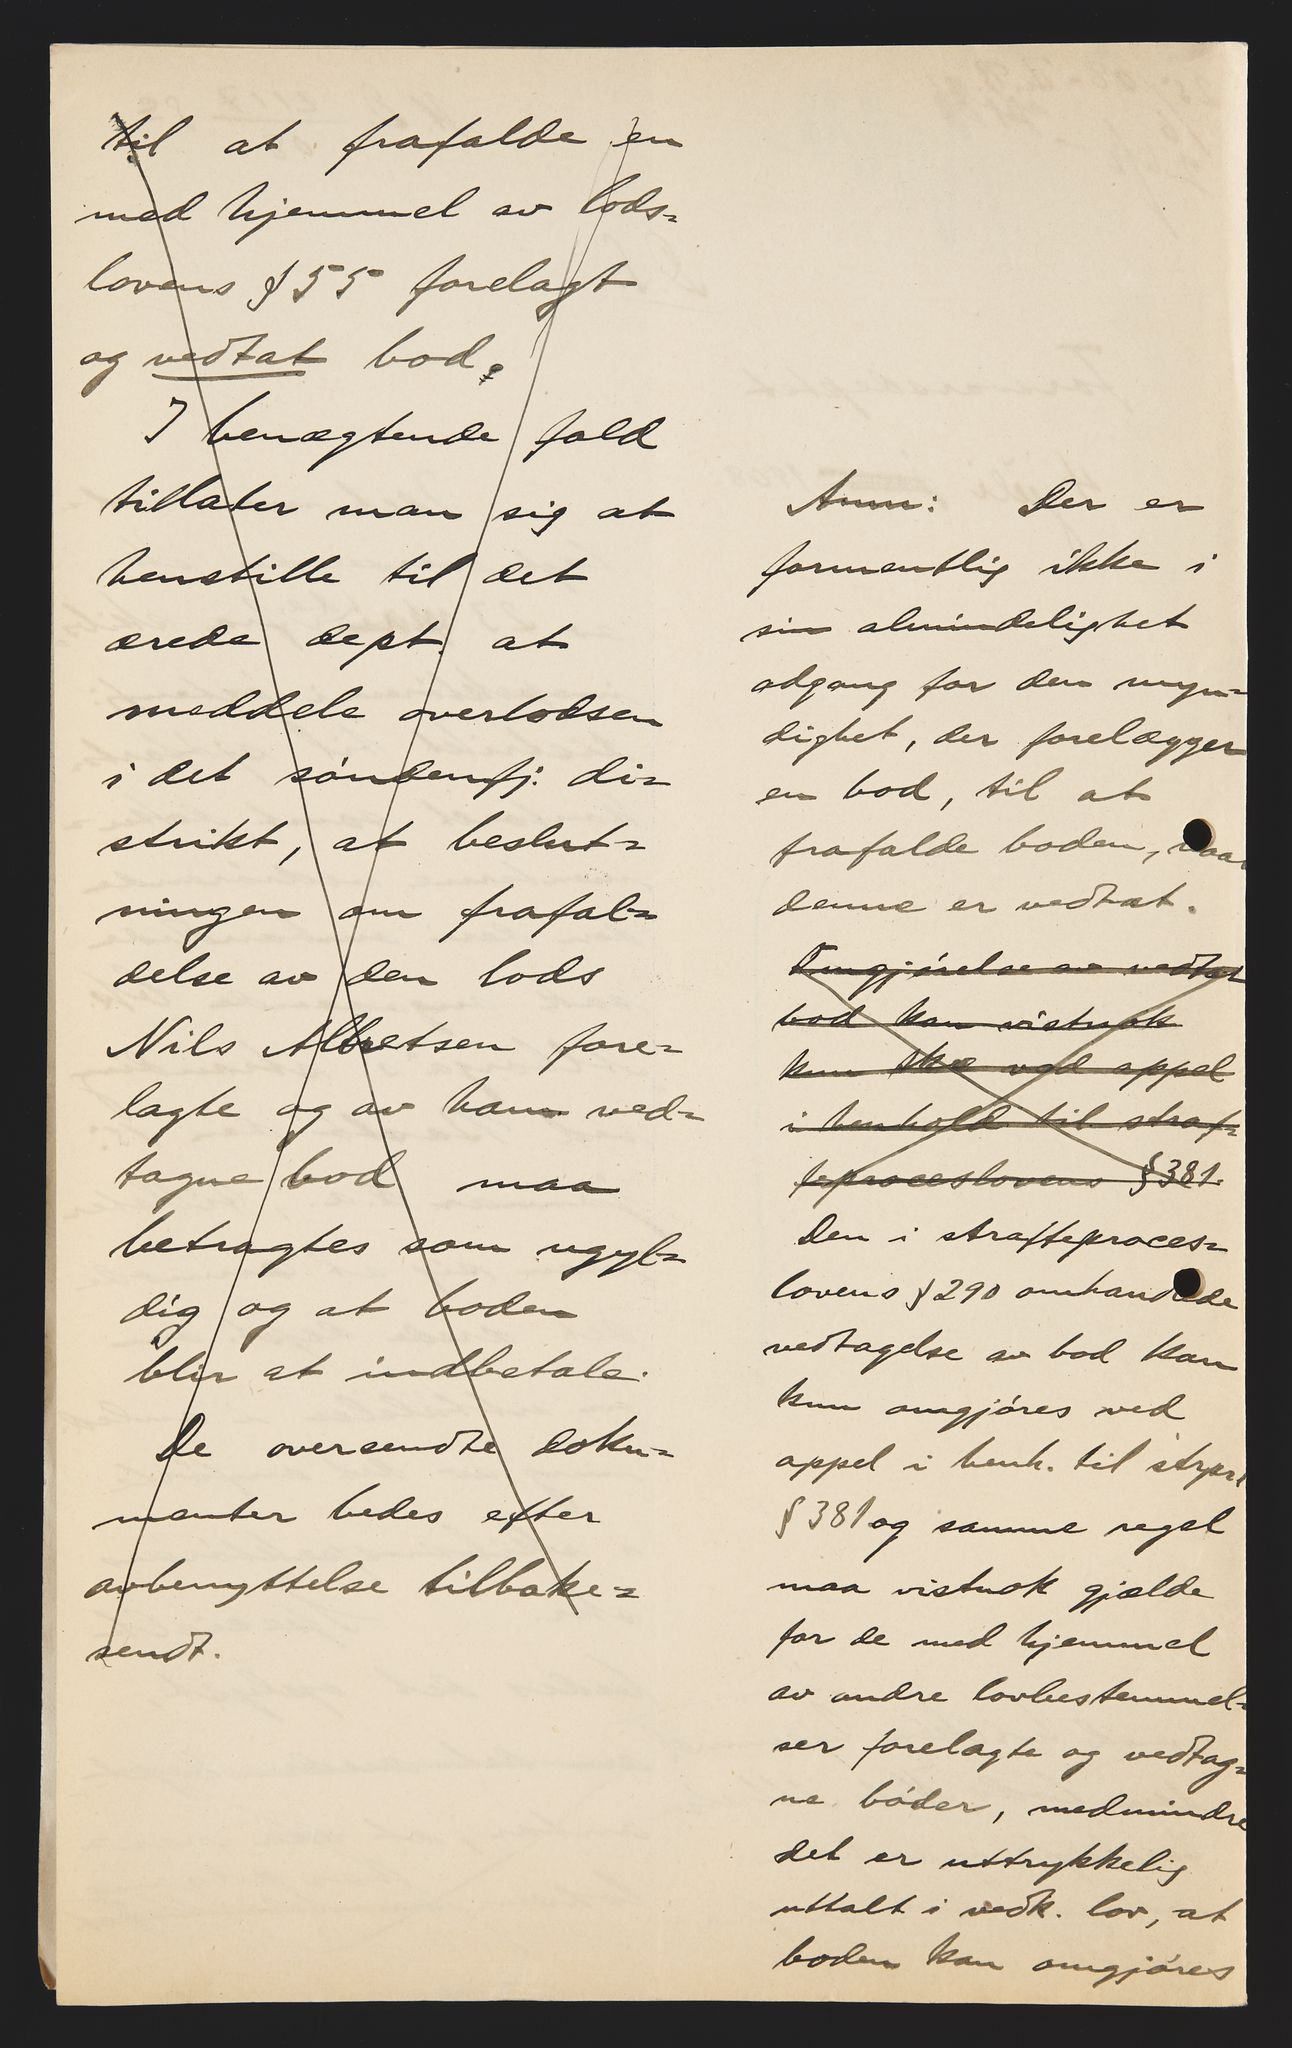 til at frafalde en
med hjemmel av lods=
lovens § 55 forelagt
og vedtat bod.
I benægtende fald
tillater man sig at
henstille til det
ærede dept. at
meddele overlodsen
i det søndenfj. di=
strikt, at beslut=
ningen om frafal=
delse av den lods
Nils Albretsen fore=
lagte og av ham ved=
tagne bod maa
betragtes som ugyl=
dig og at boden
blir at indbetale.
De oversendte doku=
menter bedes efter
avbenyttelse tilbake=
sendt.
Anm: Der er
formentlig ikke i
sin almindelighet
adgang for den myn=
dighet, der forelægger
en bod, til at
frafalde boden, naar
denne er vedtat.
Omgjørelse av vedtat
bod kan vistnok
kun ske ved appel
i henhold til straf=
feproceslovens § 381.
Den i straffeproces=
lovens § 290 omhandlede
vedtagelse av bod kan
kun omgjøres ved
appel i henh. til strprl
§ 381 og samme regel
maa vistnok gjælde
for de med hjemmel
av andre lovbestemmel=
ser forelagte og vedtag=
ne bøder, medmindre
det er uttrykkelig
uttalt i vedk. lov, at
boden kan omgjøres